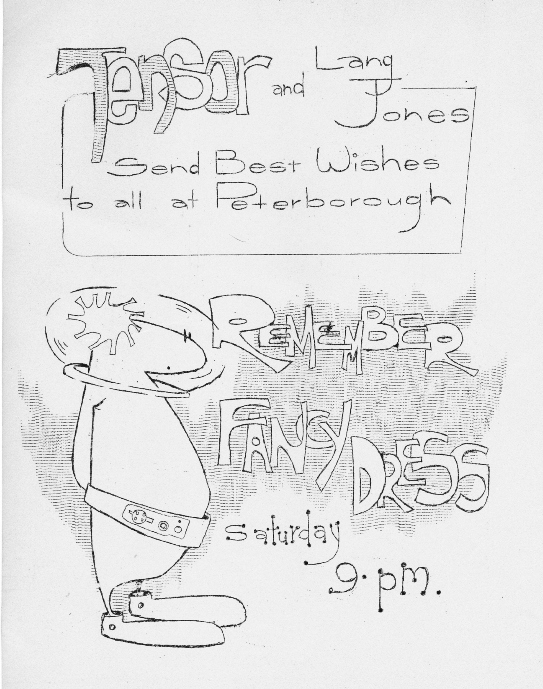 Tensor and Lang
Jones
Send Best Wishes
to all at Peterborough
REMEMBER
FANCY
DRESS
Saturday
9.pm.